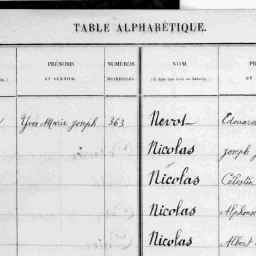 TABLE ALPHABÉTIQUE.
PRÉNOMS
NUMÉROS
NOM.
Yves Marie Joseph 263 Nevot Edouard
Nicolas Joseph J
Nicolas Célestin
Nicolas Alphonse
Nicolas Albert